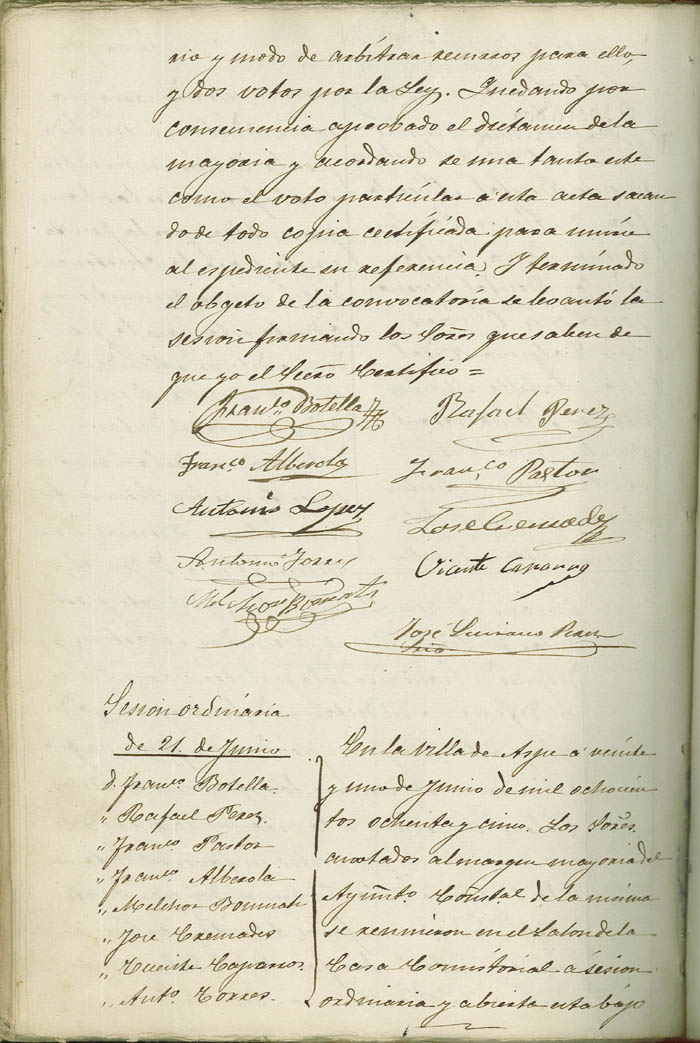 rio y modo de arbitrar recursos para ello,
y dos votos por la Ley. Quedando por
consecuencia aprobado el dictamen de la
mayoria y acordando se una tanto este
como el voto particular a esta acta sacan
do de todo copia certificada para unirse
al espediente su referencia. Y terminado
el obgeto de la convocatoria se levantó la
sesion firmando los Sores que saben de
que yo el Secrio Certifico =
Franco Botella Rafael Perez
Franco Alberola Franco Pastor
Antonio Lopez Jose Cremades
Antonio Torres Vicente Caparros
Melchor Bonmati
José Perez
Srio
Sesion ordinaria
de 21 de Junio
D. Franco Botella.
" Rafael Perez.
" Franco Pastor
" Franco Alberola
" Melchor Bonmati
" Jose Cremades
" Vicente Caparros.
" Anto Torres.
En la villa de Aspe a veinte
y uno de Junio de mil ochocien
tos ochenta y cinco. Los Sores
anotados al margen mayoria del
Ayunto Constal de la misma
se reunieron en el Salon de la
Casa Consistorial a sesion
ordinaria y abierta esta bajo